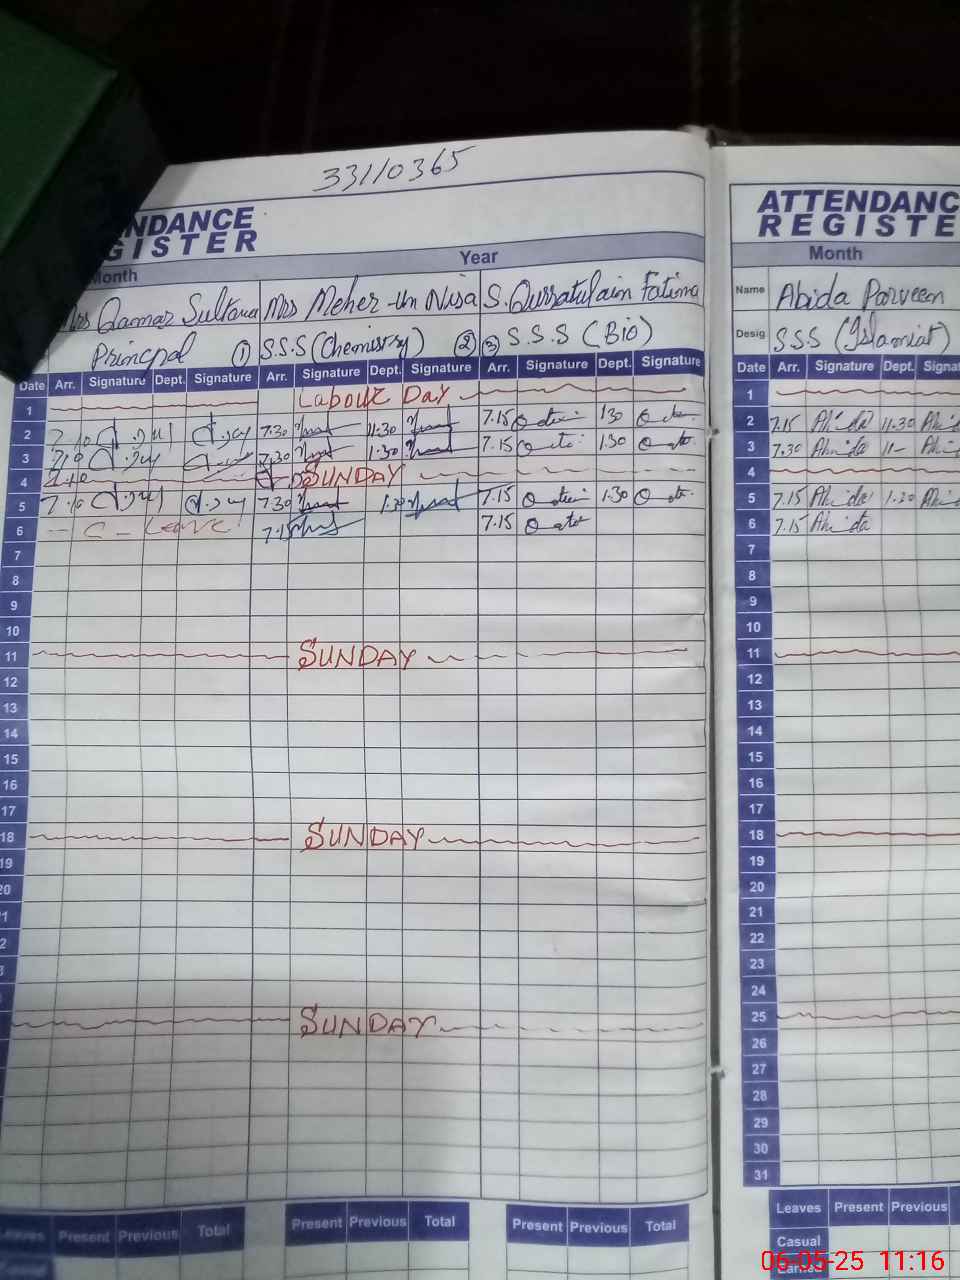 33110365
NDANCE
GISTER
ATTENDANC
REGISTE
Month Year
Month
Mrs Qamar Sultana Mrs Meher-un Nisa S. Qurratulain Fatima
Name Abida Parveen
Princpal ① S.S.S (Chemistry) ② ③ S.S.S (Bio)
Desig S.S.S (Islamiat)
Date Arr. Signature Dept. Signature Arr. Signature Dept. Signature Arr. Signature Dept. Signature
Date Arr. Signature Dept. Signat
1 Labour Day
1
2 7.30 11:30 7.15 1:30
2 7.15 Abida 11.30
3 7.30 1:30 7.15 1.30
3 7.30 Abida 11-
4 SUNDAY
4
5 7.30 1.30 7.15 1.30
5 7.15 Abida 1.30
6 C - Leave 7.15 7.15
6 7.15 Abida
7
7
8
8
9
9
10
10
11 SUNDAY
11
12
12
13
13
14
14
15
15
16
16
17
17
18 SUNDAY
18
19
19
20
20
21
21
2
22
23
24
SUNDAY
25
26
27
28
29
30
31
Leaves Present Previous Total Present Previous Total Present Previous Total
Leaves Present Previous
Casual
Earned
06-05-25 11:16